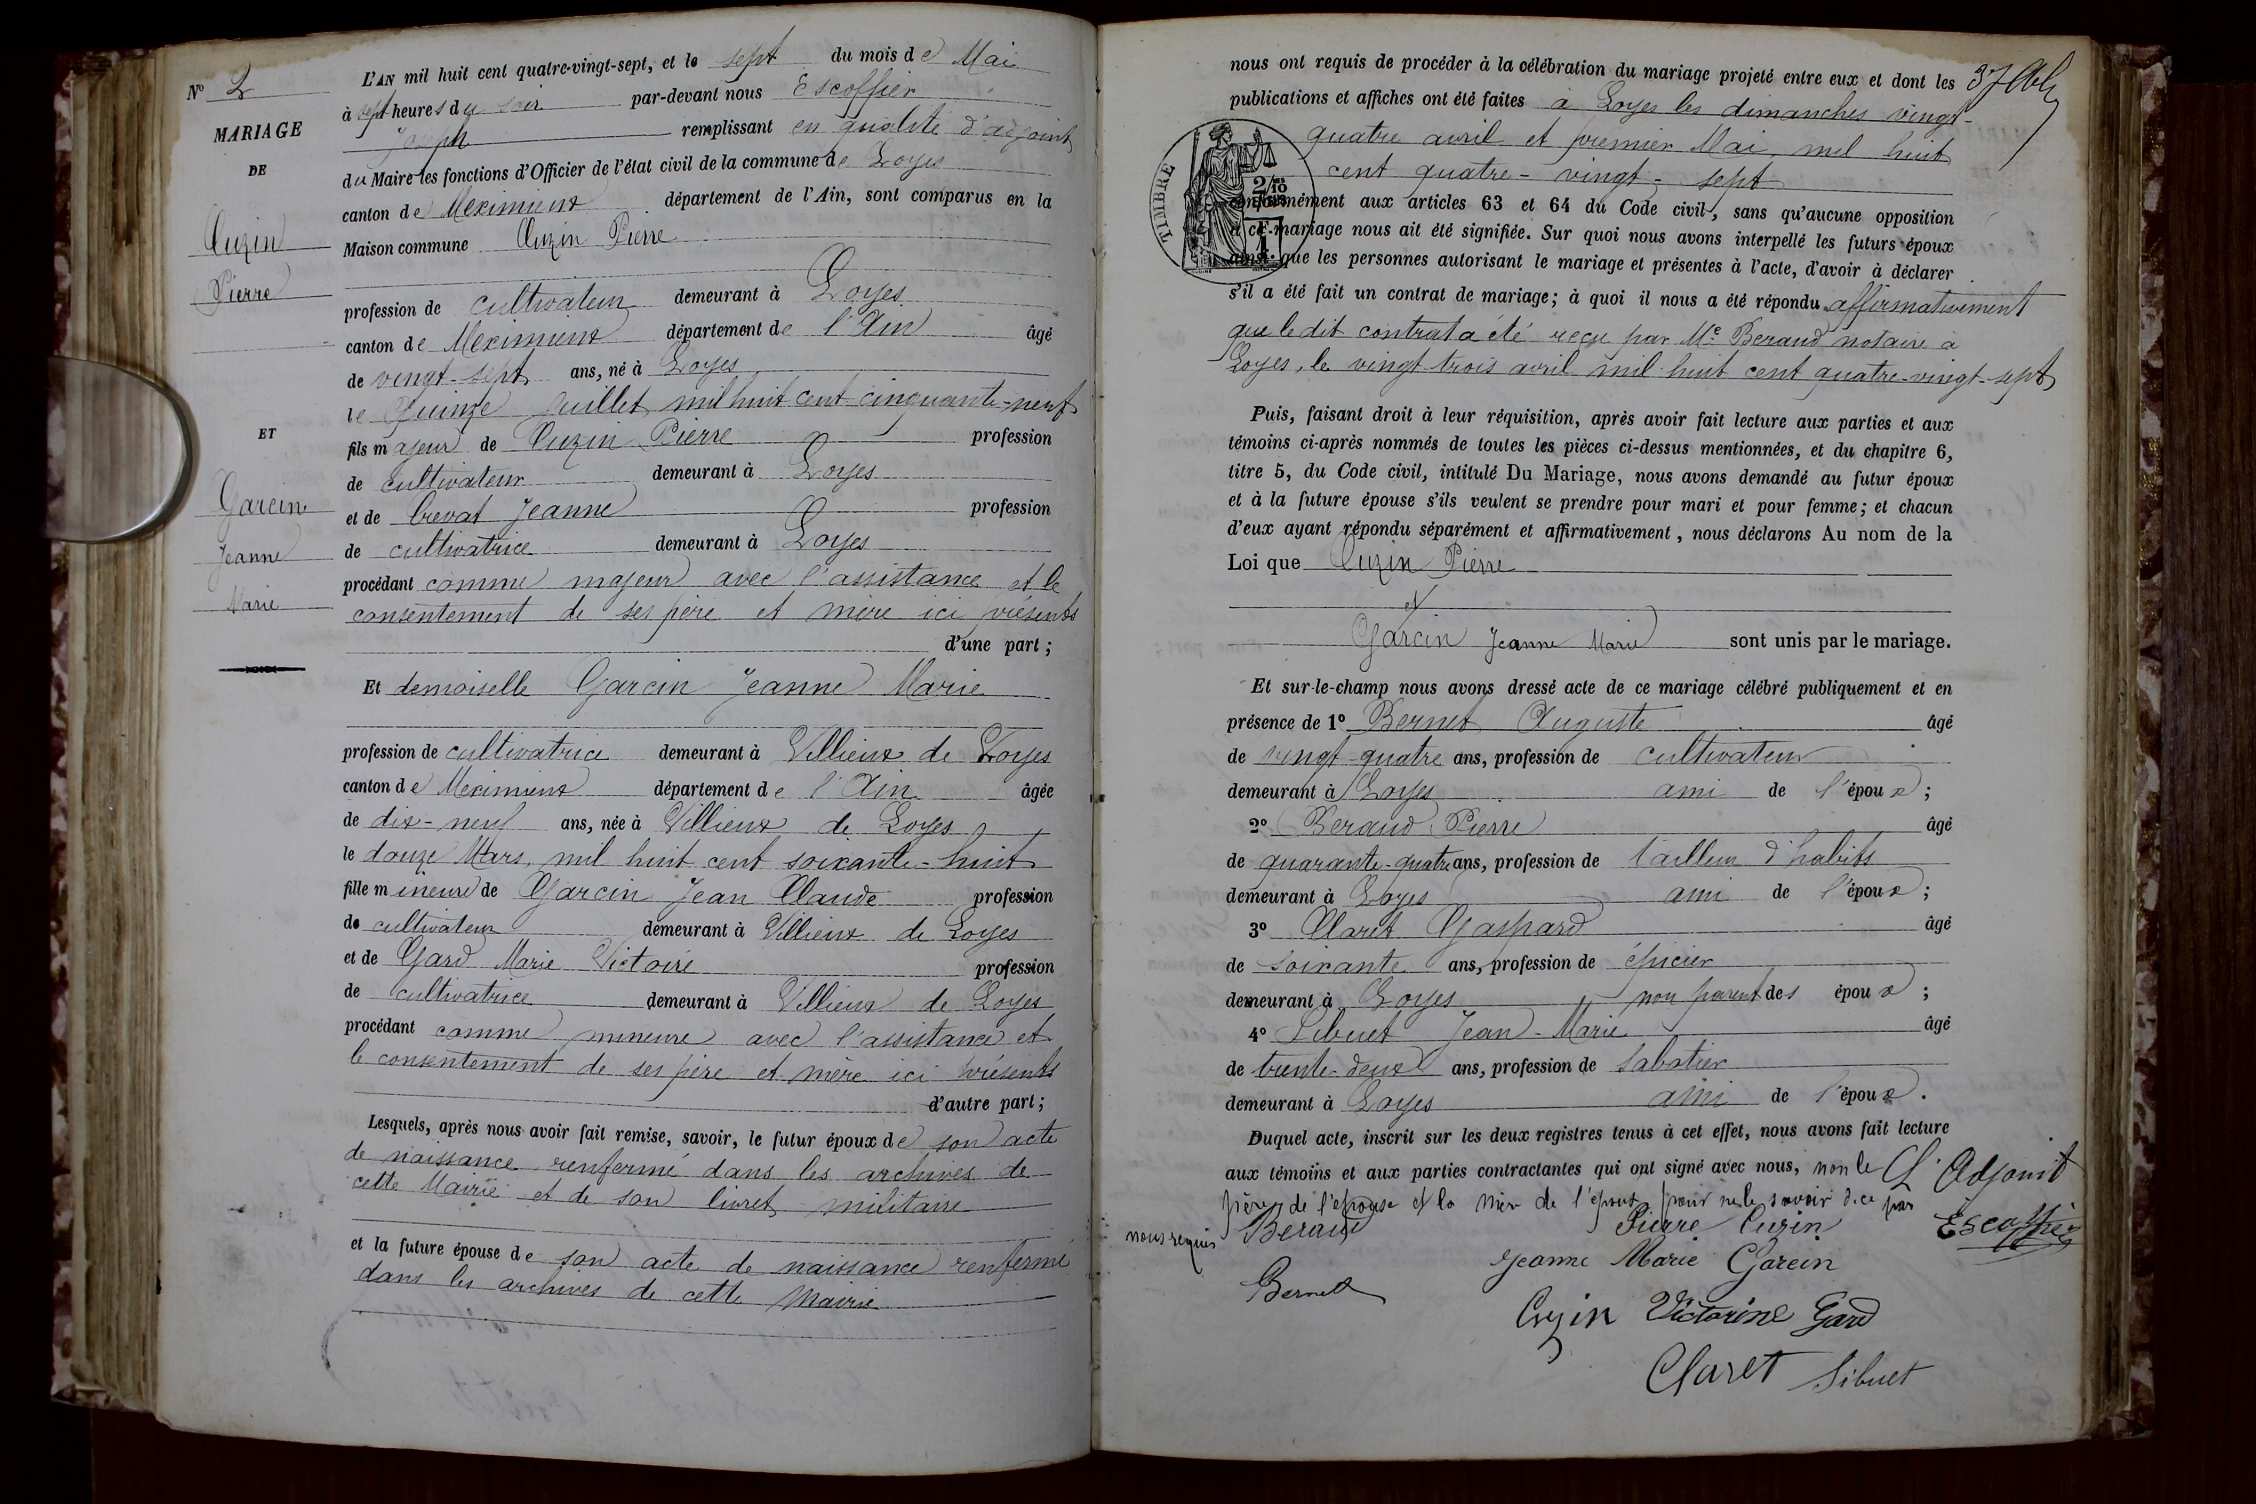 N° 2
MARIAGE
DE
Cuzin
Pierre
ET
Garcin
Jeanne
Marie
L'AN mil huit cent quatre-vingt-sept, et le sept du mois de Mai
à sept heures du soir par-devant nous Escoffier
Joseph remplissant en qualité d'adjoint
du Maire les fonctions d'Officier de l'état civil de la commune de Loyes
canton de Meximieux département de l'Ain, sont comparus en la
Maison commune Cuzin Pierre
profession de cultivateur demeurant à Loyes
canton de Meximieux département de l'Ain âgé
de vingt-sept ans, né à Loyes
le Quinze Juillet mil huit cent cinquante-neuf
fils majeur de Cuzin Pierre profession
de cultivateur demeurant à Loyes
et de Crevat Jeanne profession
de cultivatrice demeurant à Loyes
procédant comme majeur avec l'assistance et le
consentement de ses père et mère ici présents
d'une part ;
Et demoiselle Garcin Jeanne Marie
profession de cultivatrice demeurant à Villieux de Loyes
canton de Meximieux département de l'Ain âgée
de dix-neuf ans, née à Villieux de Loyes
le douze Mars mil huit cent soixante-huit
fille mineure de Garcin Jean Claude profession
de cultivateur demeurant à Villieux de Loyes
et de Gard Marie Victoire profession
de cultivatrice demeurant à Villieux de Loyes
procédant comme mineure avec l'assistance et
le consentement de ses père et mère ici présents
d'autre part ;
Lesquels, après nous avoir fait remise, savoir, le futur époux de son acte
de naissance renfermé dans les archives de
cette Mairie et de son livret militaire
et la future épouse de son acte de naissance renfermé
dans les archives de cette Mairie
nous ont requis de procéder à la célébration du mariage projeté entre eux et dont les
publications et affiches ont été faites à Loyes les dimanches vingt-
quatre avril et premier Mai mil huit
cent quatre-vingt-sept
conformément aux articles 63 et 64 du Code civil, sans qu'aucune opposition
à ce mariage nous ait été signifiée. Sur quoi nous avons interpellé les futurs époux
ainsi que les personnes autorisant le mariage et présentes à l'acte, d'avoir à déclarer
s'il a été fait un contrat de mariage; à quoi il nous a été répondu affirmativement
que le dit contrat a été reçu par Me Beraud notaire à
Loyes, le vingt-trois avril mil huit cent quatre-vingt-sept
TIMBRE
2/10
Puis, faisant droit à leur réquisition, après avoir fait lecture aux parties et aux
témoins ci-après nommés de toutes les pièces ci-dessus mentionnées, et du chapitre 6,
titre 5, du Code civil, intitulé Du Mariage, nous avons demandé au futur époux
et à la future épouse s'ils veulent se prendre pour mari et pour femme; et chacun
d'eux ayant répondu séparément et affirmativement, nous déclarons Au nom de la
Loi que Cuzin Pierre
et
Garcin Jeanne Marie sont unis par le mariage.
Et sur-le-champ nous avons dressé acte de ce mariage célébré publiquement et en
présence de 1° Bernet Auguste âgé
de vingt-quatre ans, profession de cultivateur
demeurant à Loyes ami de l'époux ;
2° Beraud Pierre âgé
de quarante-quatre ans, profession de tailleur d'habits
demeurant à Loyes ami de l'époux ;
3° Claret Gaspard âgé
de soixante ans, profession de épicier
demeurant à Loyes non parent des époux ;
4° Sibuet Jean-Marie âgé
de trente-deux ans, profession de sabotier
demeurant à Loyes ami de l'époux .
Duquel acte, inscrit sur les deux registres tenus à cet effet, nous avons fait lecture
aux témoins et aux parties contractantes qui ont signé avec nous, non le
père de l'épouse et la mère de l'époux pour ne le savoir de ce par
nous requis
L'Adjoint
Escoffier
Beraud
Pierre Cuzin
Jeanne Marie Garcin
Bernet
Cuzin Victorine Gard
Claret Sibuet